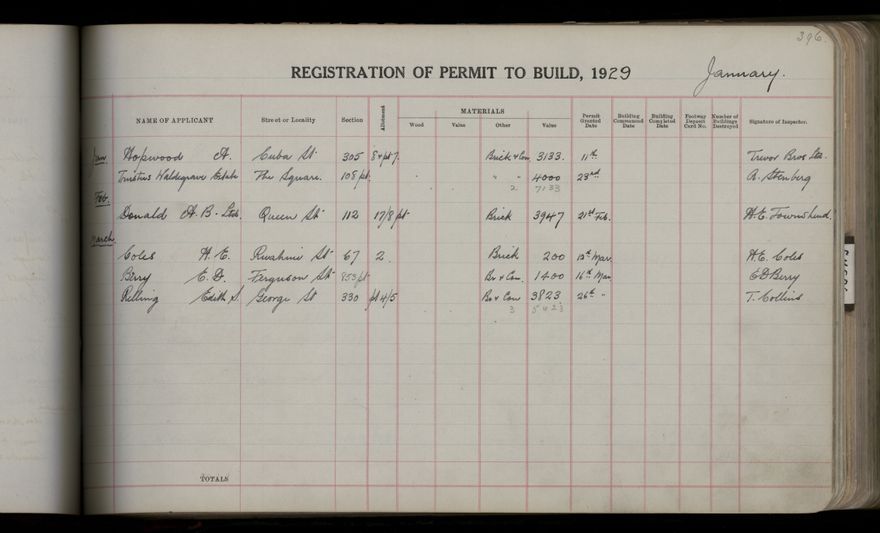 396.
REGISTRATION OF PERMIT TO BUILD, 1929 January.
NAME OF APPLICANT Street or Locality Section Allotment MATERIALS Wood Value Other Value Permit Granted Date Building Commenced Date Building Completed Date Footway Deposit Card No. Number of Buildings Destroyed Signature of Inspector.
Jan. Hopwood A. Cuba St 305 8 & pt 7. Brick & Con. 3133. 11th Trevor Bros Ltd.
Trustees Waldegrave Estate The Square. 108 pt. " " 4000 23rd A. Stenberg
2 7133
Feb.
Donald A. B. Ltd. Queen St 112 17/8 pt Brick 3947 21st Feb. H.E. Townshend.
March
Coles H. E. Ruahine St 67 2. Brick 200 12th Mar. H.E. Coles
Berry E. D. Ferguson St 853 pt Br & Con. 1400 16th Mar. E D Berry
Edith S. George St 330 pt 4/5 Br & Con 3823 26th " T. Collins
3 5423
TOTALS